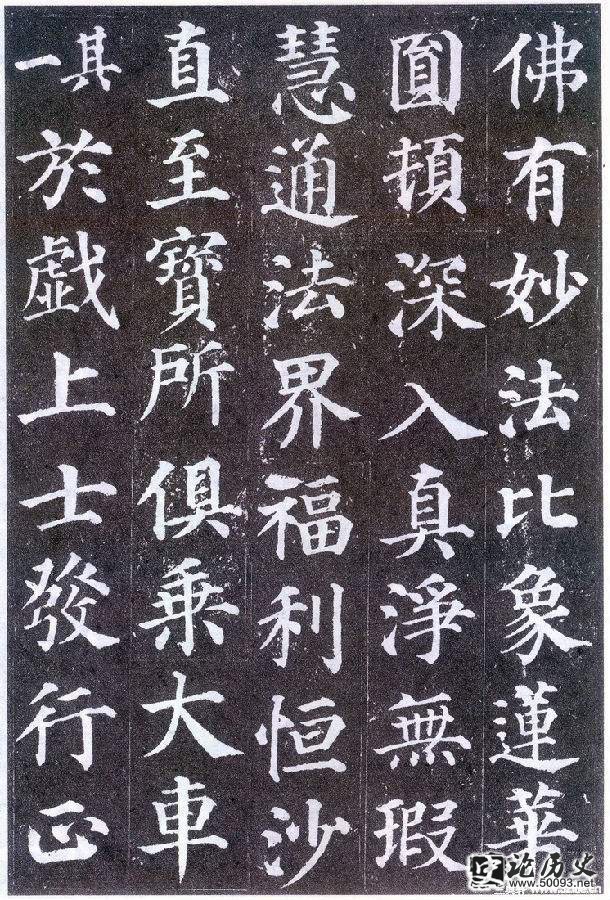 佛有妙法比象蓮華
圓頓深入真淨無瑕
慧通法界福利恒沙
直至寶所俱乘大車
其一於戲上士發行正
论历史
www.50093.net